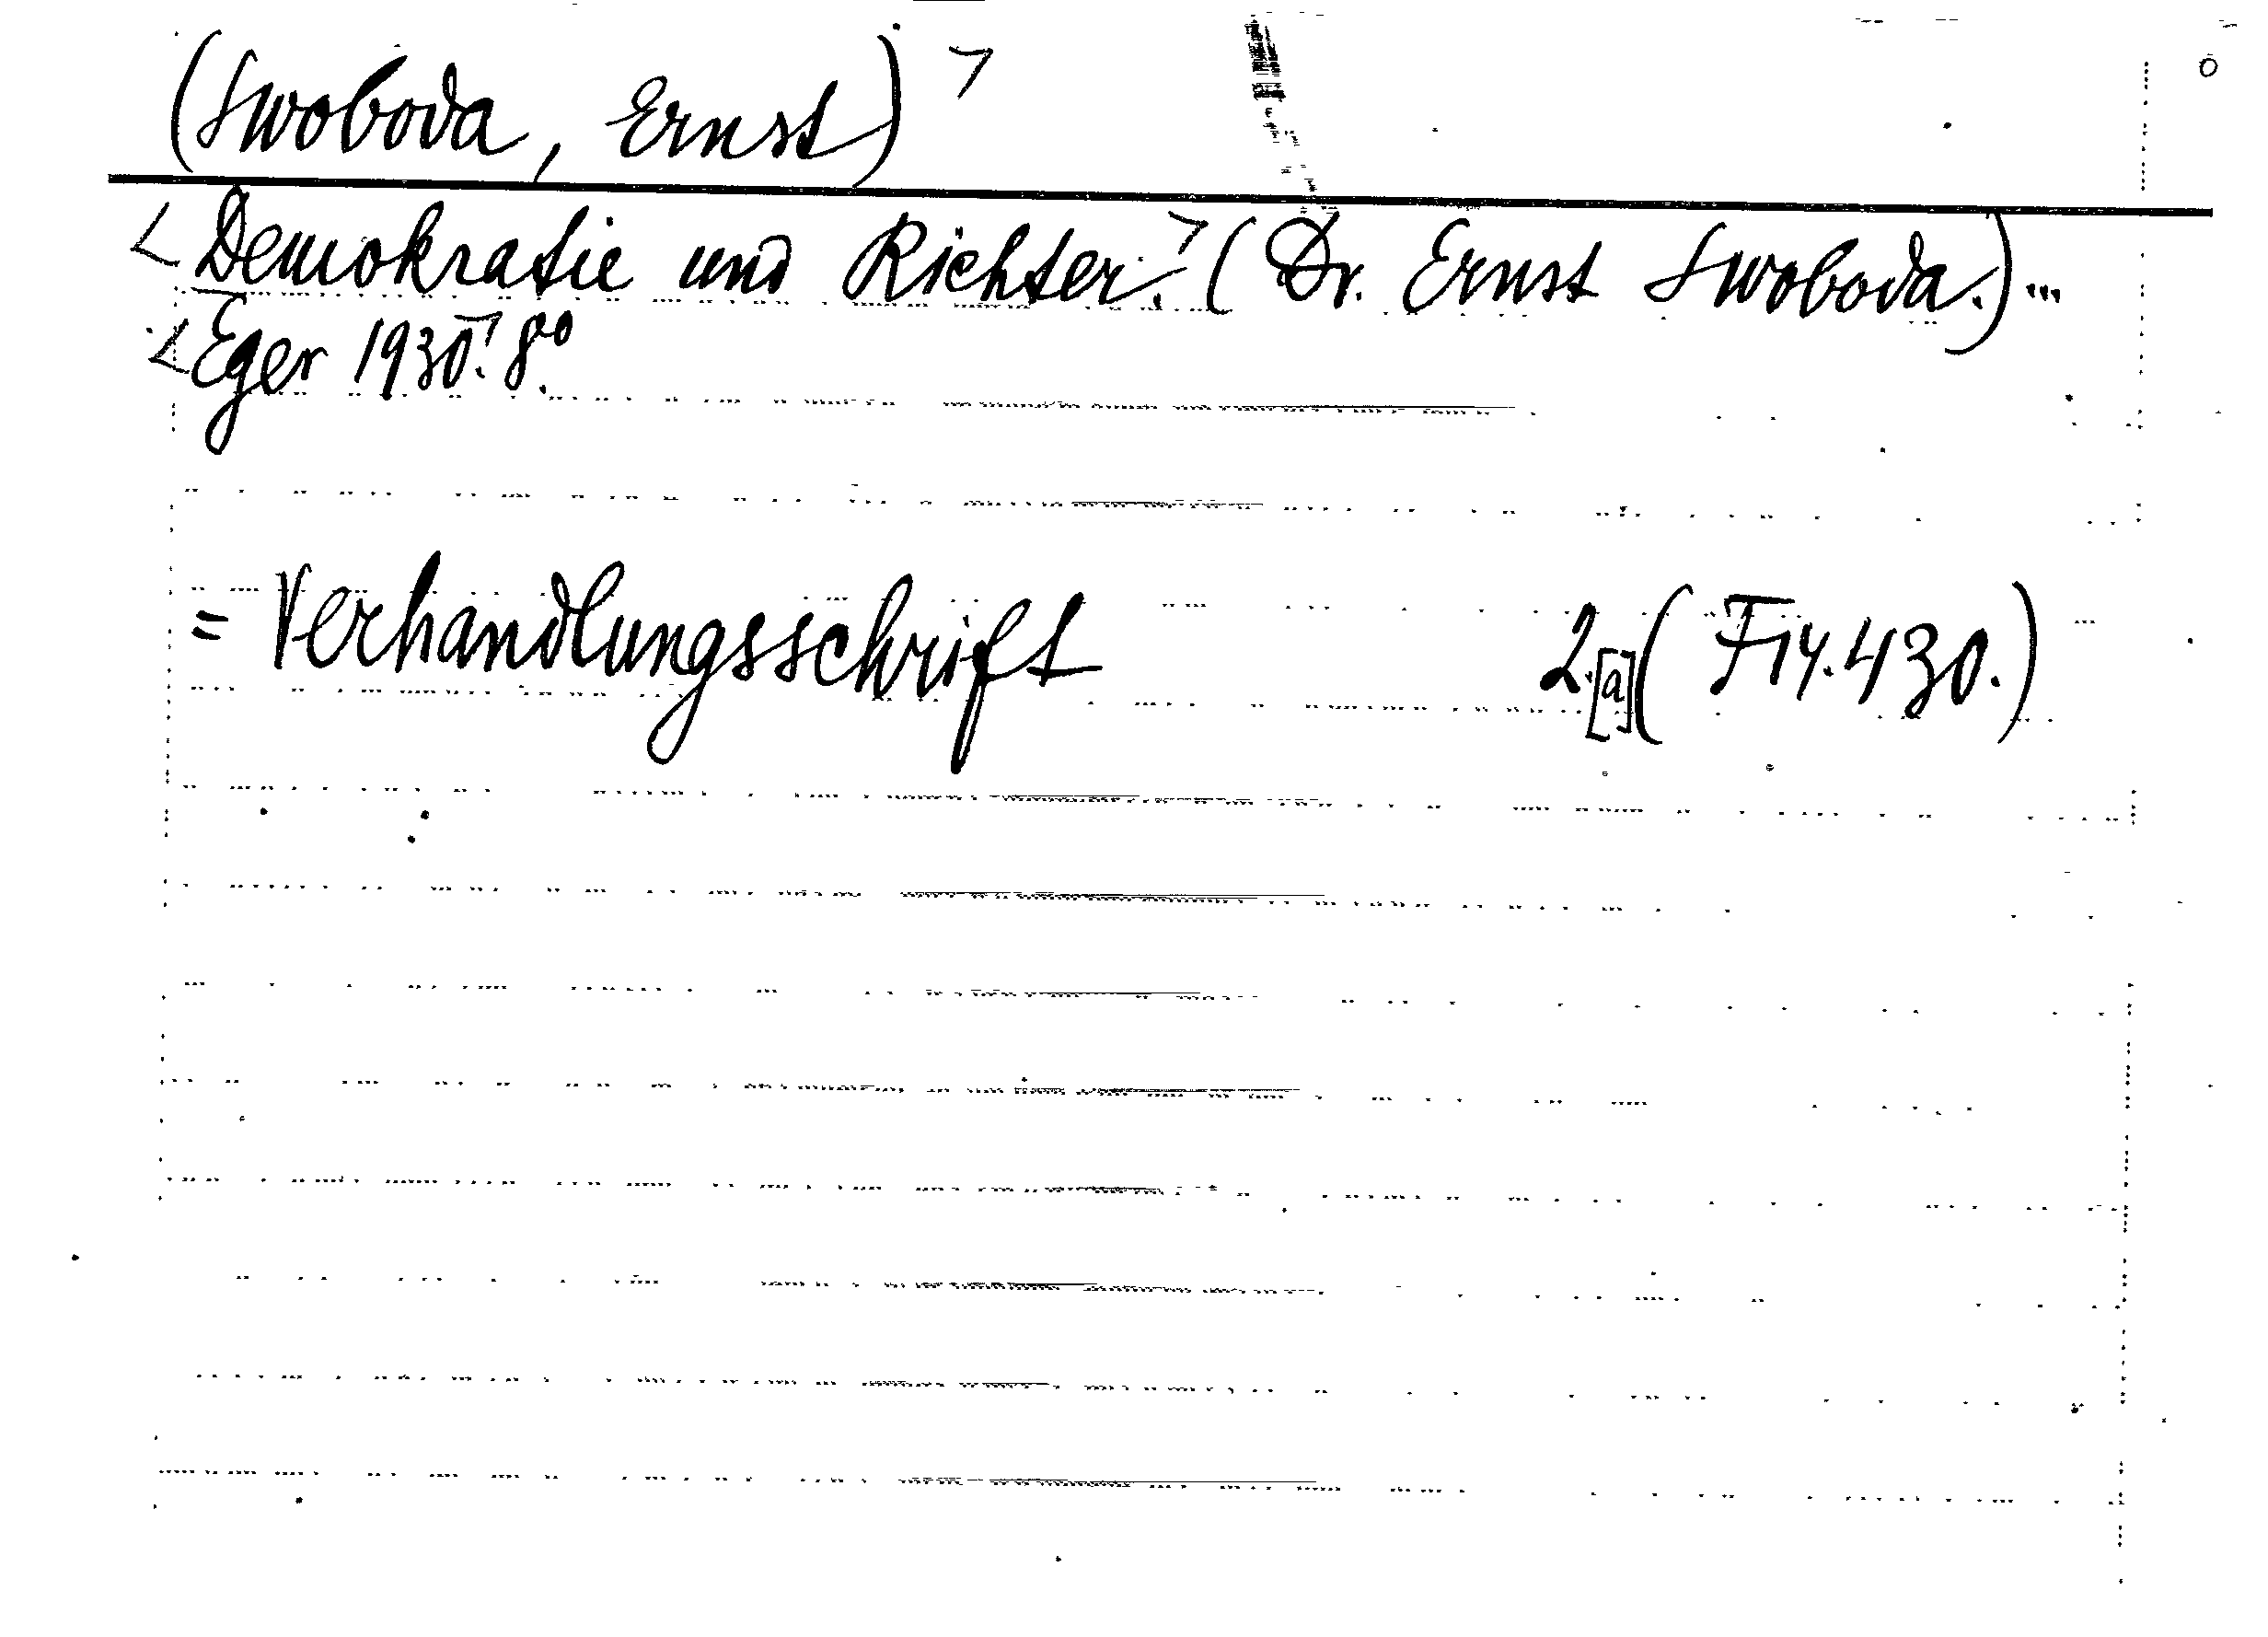 (Swoboda, Ernst) >
< Demokratie und Richter. > (Dr. Ernst Swoboda.) ...
< Eger 1930. > 8.°
= Verhandlungsschrift 2.[a] (F14.430.)